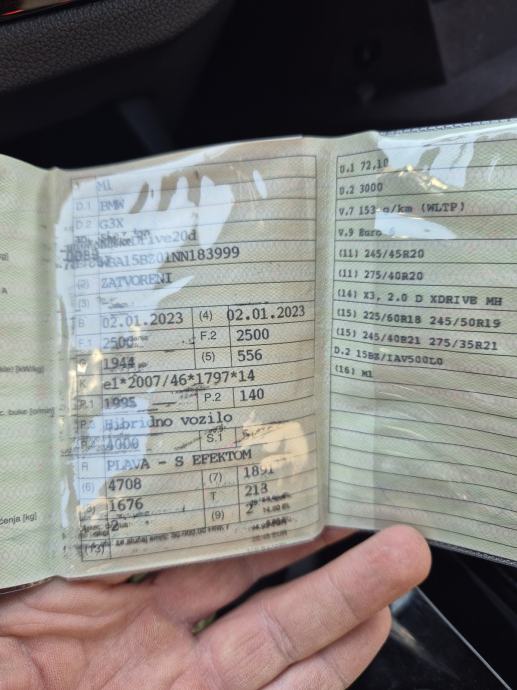 M1
D.1 BMW
D.2 G3X
WBA15BZ01NN183999
(2) ZATVORENI
(3)
B 02.01.2023 (4) 02.01.2023
F.1 2500 F.2 2500
1944 (5) 556
K e1*2007/46*1797*14
P.1 1995 P.2 140
P.3 Hibridno vozilo
4000 S.1
R PLAVA - S EFEKTOM
(6) 4708 (7) 1891
1676 T 213
2 (9) 2
U.1 72,10
U.2 3000
V.7 153 g/km (WLTP)
V.9 Euro
(11) 245/45R20
(11) 275/40R20
(14) X3, 2.0 D XDRIVE MH
(15) 225/60R18 245/50R19
(15) 245/40R21 275/35R21
D.2 15BZ/IAV500L0
(16) M1